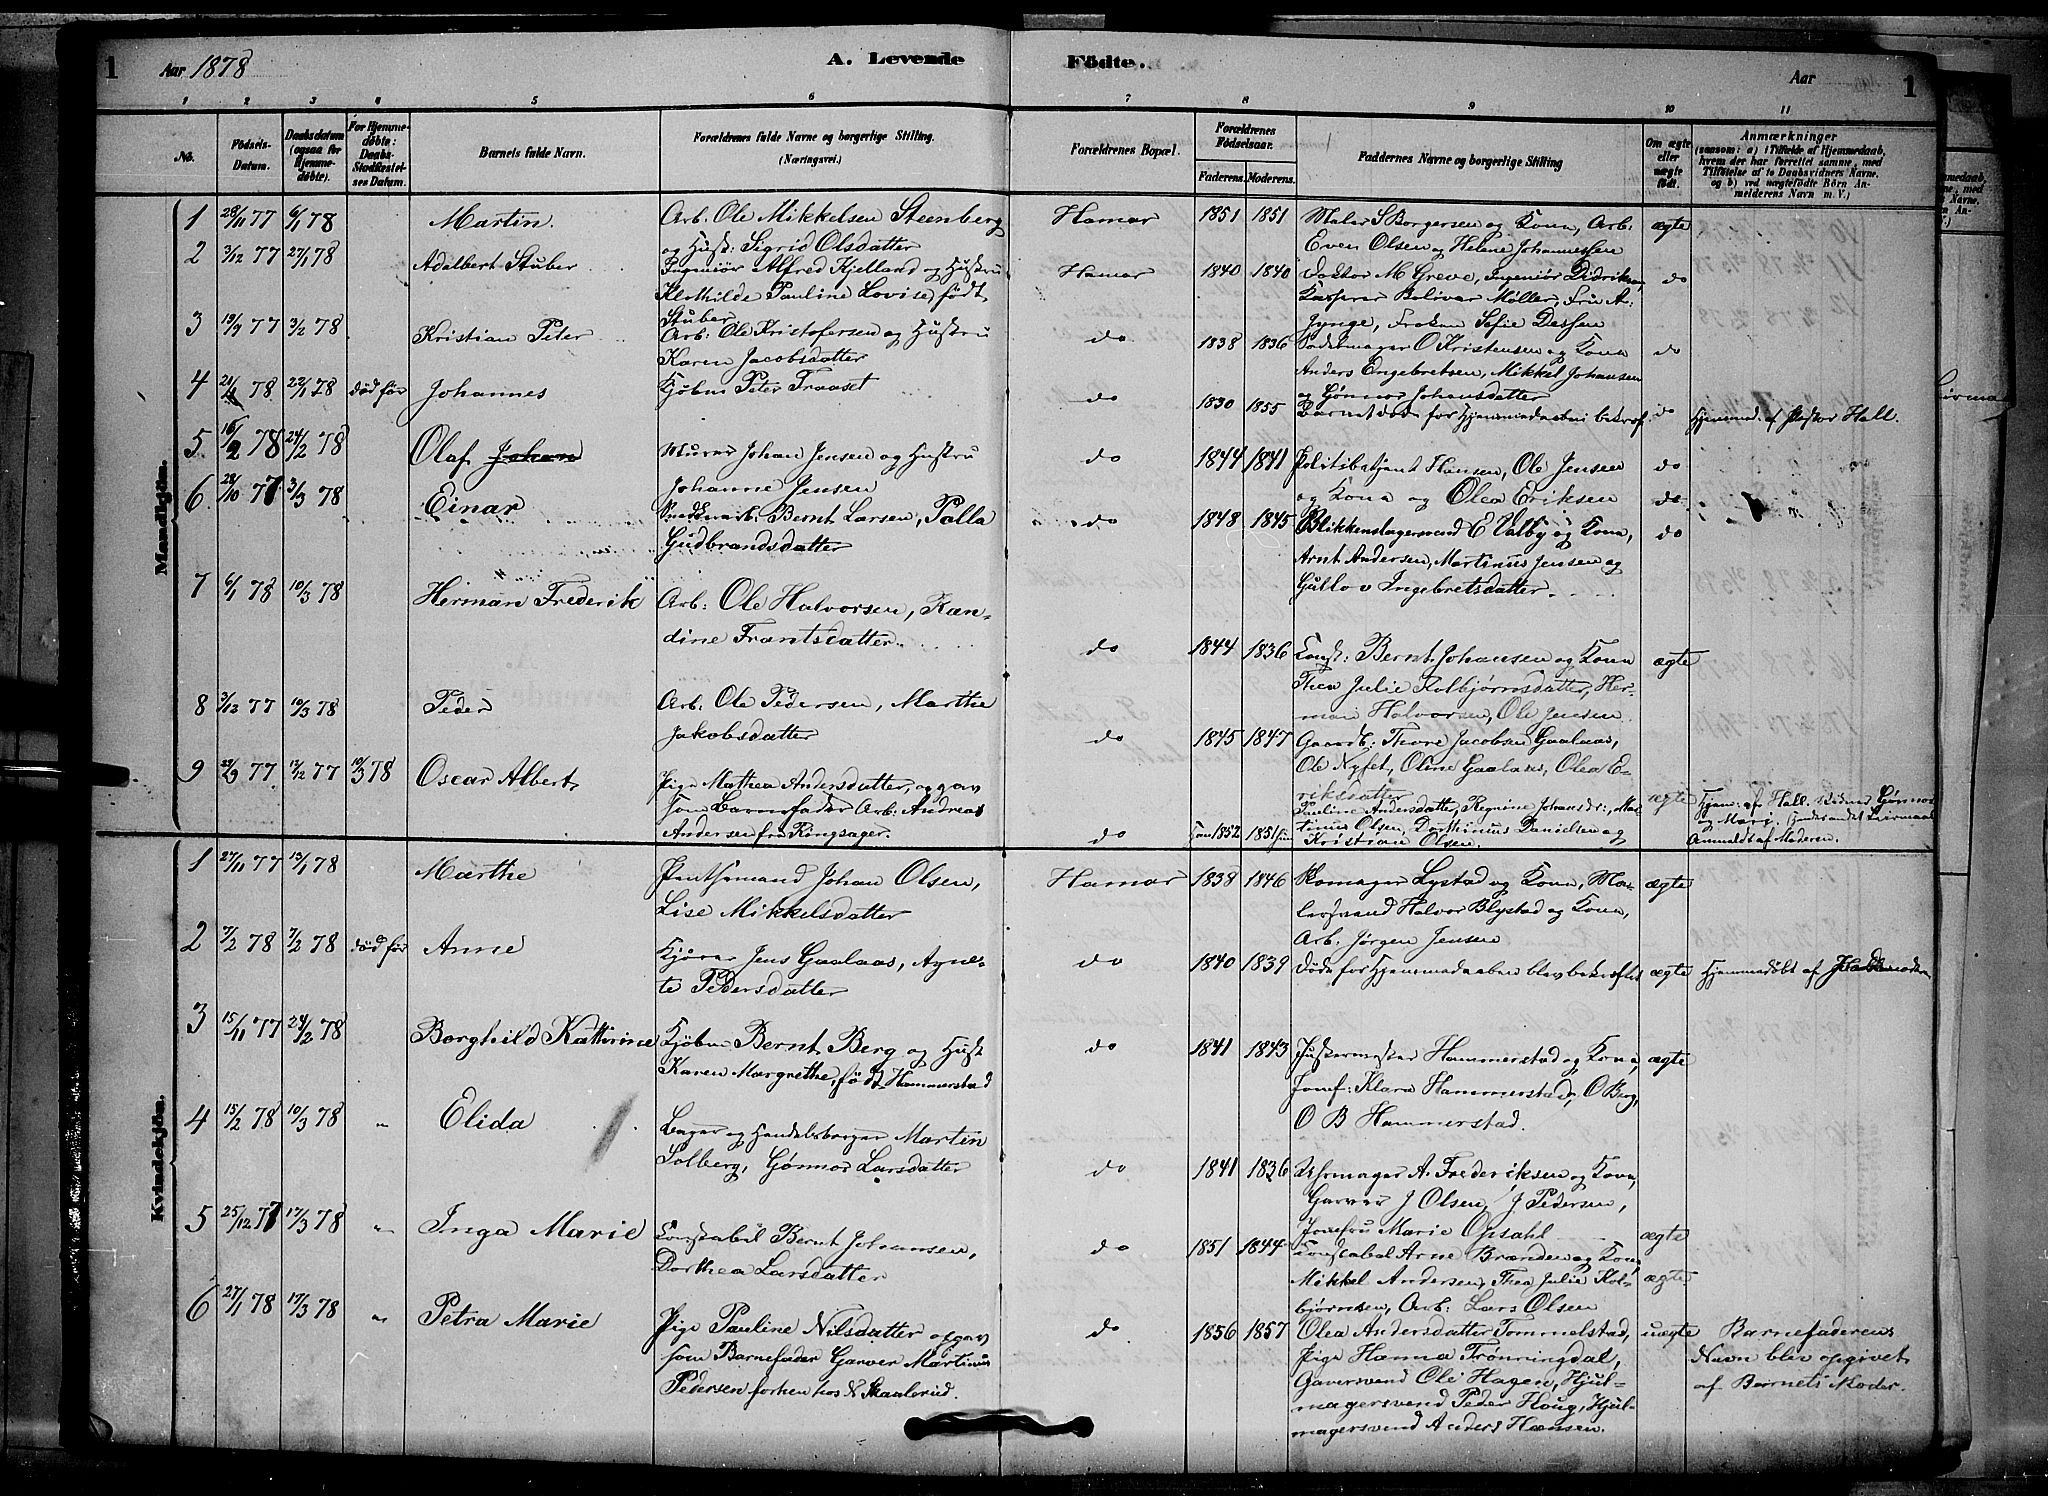 1 Aar 1878 A. Levende Fødte. Aar 1
1 2 3 4 5 6 7 8 9 10 11
No. Fødsels-Datum. Daabsdatum (ogsaa for Hjemmedøbte). For Hjemmedøbte: Daabs-Stadfæstelses Datum. Barnets fulde Navn. Forældrenes fulde Navne og borgerlige Stilling. (Næringsvei.) Forældrenes Bopæl. Forældrenes Fødselsaar. Faderens. Moderens. Faddernes Navne og borgerlige Stilling Om ægte eller uægte født. Anmærkninger (saasom: a) i Tilfælde af Hjemmedaab, hvem der har forrettet samme, med Tilføielse af to Daabsvidners Navne. og b) ved uægtefødte Børn Anmelderens Navn m. V.)
Mandkjøn.
1 28/11 77 6/1 78 Martin. Arb: Ole Mikkelsen Steenberg Hamar 1851 1851 Maler S Borgersen og Kona, Arb: ægte
og Hust: Sigrid Olsdatter Even Olsen og Helene Johannessen
2 3/12 77 27/1 78 Adelbert Stuber Ingeniør Alfred Kjelland og Hustru Hamar 1840 1840 Doktor M Greve, Ingeniør Didriksen, do
Klothilde Pauline Lovise, født Kasserer Bolivar Møller, Fru A.
Stuber Jynge, Frøken Sofie Dessen
3 19/7 77 3/2 78 Kristian Peter Arb: Ole Kristofersen og Hustru do 1838 1836 Sadelmager O Kristensen og Kona do
Karen Jacobsdatter Anders Engebretsen, Mikkel Johansen
og Gønnor Johansdatter
4 22/1 78 død før Johannes Kjøbm Peter Fraaset do 1830 1855 Barnet døde før Hjemmedaaben bekræf. do Hjemmed. af Pastor Hall.
5 16/2 78 24/2 78 Olaf Johan Murer Johan Jensen og Hustru do 1844 1841 Politibetjent Hansen, Ole Jensen do
Johanne Jensen og Kona og Olea Eriksen do
6 28/10 77 3/3 78 Einar Snedkerarb: Bernt Larsen, Palla do 1848 1845 Blikkenslagersvend E Valby og Kona, do
Gudbrandsdatter Arnt Andersen, Martinus Jensen og
Gullov Ingebretsdatter.
7 6/1 78 10/3 78 Herman Frederik Arb: Ole Halvorsen, Kan-
dine Frantsdatter. do 1844 1836 Const: Bernt Johansen og Kona ægte
Thea Julie Kolbjørnsdatter, Her-
man Halvorsen, Ole Jensen
8 3/12 77 10/3 78 Peder Arb: Ole Pedersen, Marthe
Jakobsdatter do 1845 1847 Gaardb: Thore Jacobsen Gaalaas,
Ole Nyfet, Oline Gaalaas, Olea E-
riksdatter ægte
9 29/9 77 17/12 77 10/3 78 Oscar Albert Pige Mathea Andersdatter, opgav
som Barnefader Arb: Andreas
Andersen fra Ringsager. do Ham 1852 1851 Pauline Andersdatter, Regnine Johansdr:, Mar-
tinus Olsen, Dorthinus Danielsen og
Kristian Olsen. Hjem: af Hall.
Anmeldt af Moderen.
Kvindekjøn.
1 27/11 77 13/1 78 Marthe Johan Olsen, Hamar 1838 1846 Skomager Lystad og Kona, Ma- ægte
Lise Mikkelsdatter lersvend Halvor Blystad og Kona,
Arb: Jørgen Jensen
2 7/2 78 7/2 78 død før Anne Kjører Jens Gaalaas, Agne- do 1840 1839 Døde før Hjemmedaaben blev bekræftet ægte Hjemmedøbt af
te Pedersdatter
3 15/11 77 24/2 78 Borghild Kathrine Kjøbm Bernt Berg og Hust do 1841 1843 Hammerstad og Kona, ægte
Karen Margrethe, født Hammerstad Jomf: Klara Hammerstad, O Berg,
O B Hammerstad.
4 15/2 78 10/3 78 " Elida Bager og Handelsborger Martin
Solberg, Gønnor Larsdatter do 1841 1836 Uhrmager A. Frederiksen og Kona,
Garver J Olsen, J Pedersen,
Jomfru Marie Opsahl ægte
5 25/12 77 17/3 78 " Inga Marie Constabel Bernt Johansen, do 1851 1844 Constabel Arne Brænden og Kona,
Dorthea Larsdatter Mikkel Andersen, Thea Julie Kol- ægte
bjørnsen, Arb: Lars Olsen
6 27/1 78 17/3 78 " Petra Marie Pige Pauline Nilsdatter opgav do 1856 1857 Olea Andersdatter Tommelstad, uægte Barnefaderens
som Barnefader Garver Martinus Pige Hanna Trønningdal, Navn blev opgivet
Pedersen forhen hos N Skaalerud. Gaversvend Ole Hagen, Hjul- af Barnets Moder.
magersvend Peder Houg, Hjul-
magersvend Anders Hansen.